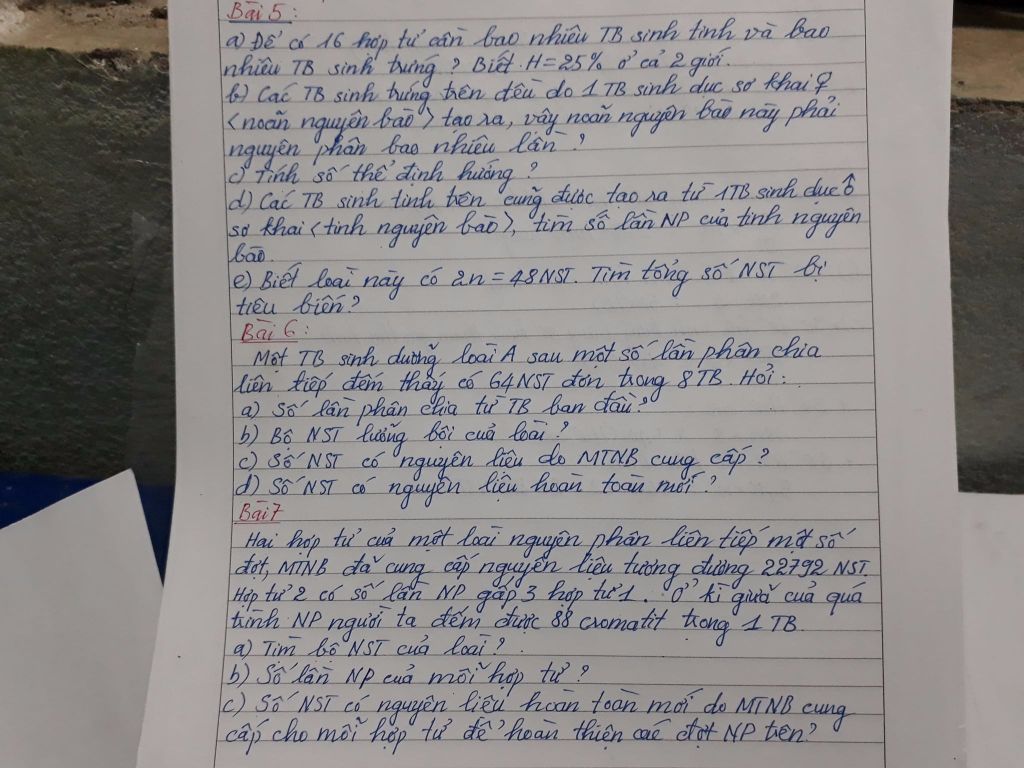 Bài 5:
a) Để có 16 hợp tử cần bao nhiêu TB sinh tinh và bao
nhiêu TB sinh trứng? Biết H = 25% ở cả 2 giới.
b) Các TB sinh trứng trên đều do 1 TB sinh dục sơ khai ♀
<noãn nguyên bào> tạo ra, vậy noãn nguyên bào này phải
nguyên phân bao nhiêu lần?
c) Tính số thể định hướng?
d) Các TB sinh tinh trên cũng được tạo ra từ 1TB sinh dục ♂
sơ khai <tinh nguyên bào>, tìm số lần NP của tinh nguyên
bào.
e) Biết loài này có 2n = 48 NST. Tìm tổng số NST bị
tiêu biến?
Bài 6:
Một TB sinh dưỡng loài A sau một số lần phân chia
liên tiếp đếm thấy có 64 NST đơn trong 8 TB. Hỏi:
a) Số lần phân chia từ TB ban đầu?
b) Bộ NST lưỡng bội của loài?
c) Số NST có nguyên liệu do MTNB cung cấp?
d) Số NST có nguyên liệu hoàn toàn mới?
Bài 7
Hai hợp tử của một loài nguyên phân liên tiếp một số
đợt, MTNB đã cung cấp nguyên liệu tương đương 22792 NST
Hợp tử 2 có số lần NP gấp 3 hợp tử 1. Ở kì giữa của quá
trình NP người ta đếm được 88 cromatit trong 1 TB
a) Tìm bộ NST của loài?
b) Số lần NP của mỗi hợp tử?
c) Số NST có nguyên liệu hoàn toàn mới do MTNB cung
cấp cho mỗi hợp tử để hoàn thiện các đợt NP trên?